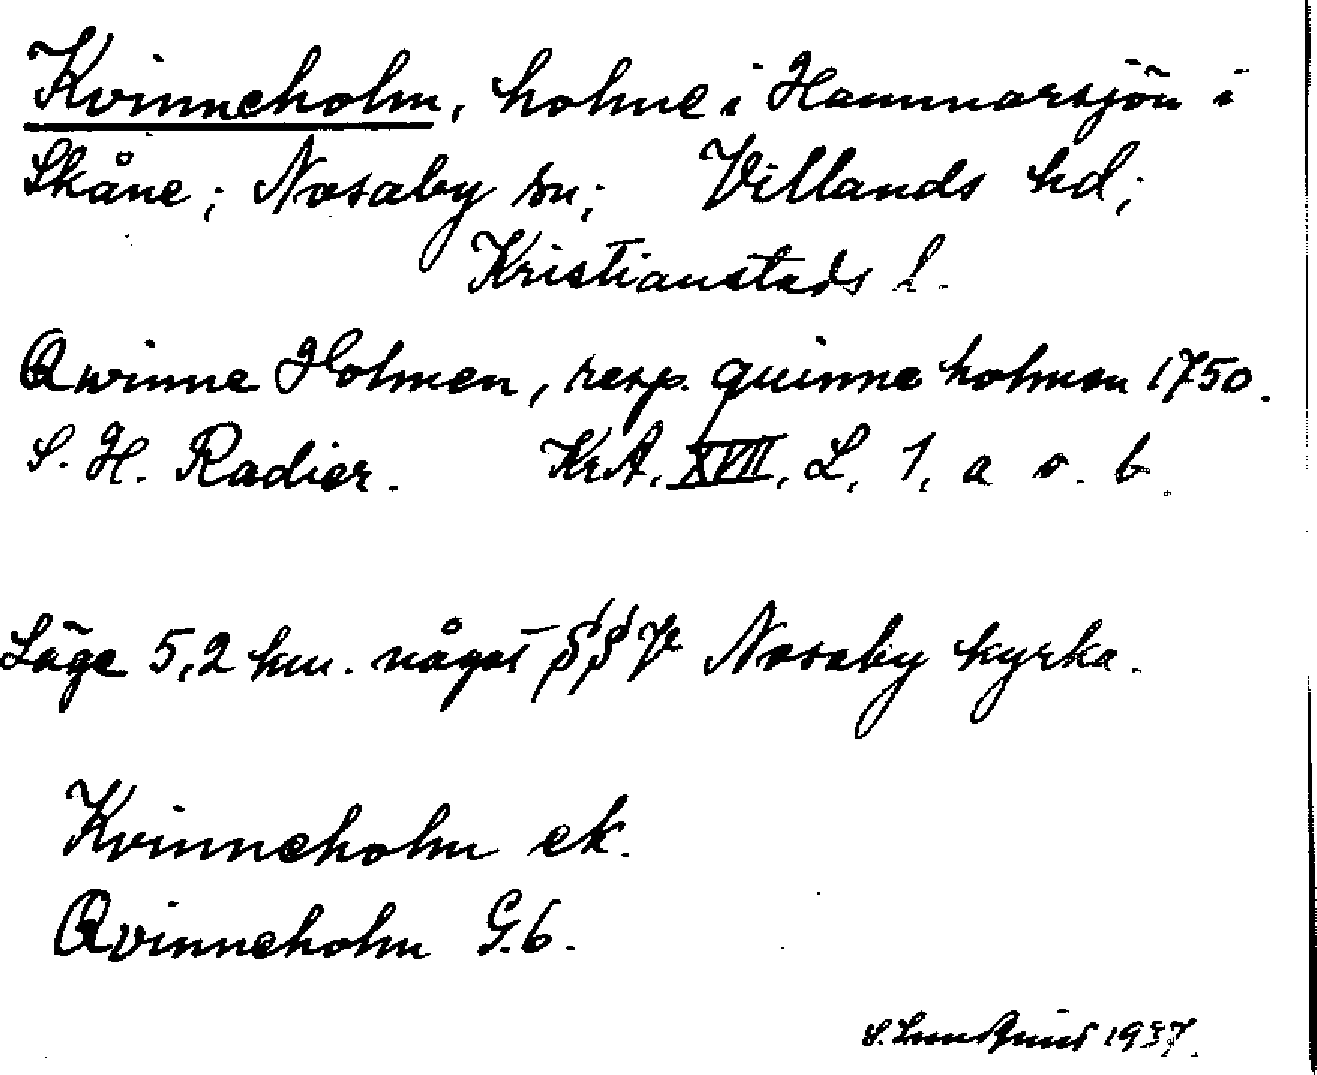 Kvinneholm, holme i Hammarsjön i
Skåne; Nosaby sn; Villands hd;
Kristianstads l.
Qwinne Holmen, resp. quinne holmen 1750.
S. H. Radier. KrA. XVII, L, 1, a o. b.
Läge 5,2 km. något SSV Nosaby kyrka.
Kvinneholm ek.
Qvinneholm G.b.
S. Lundquist 1937.